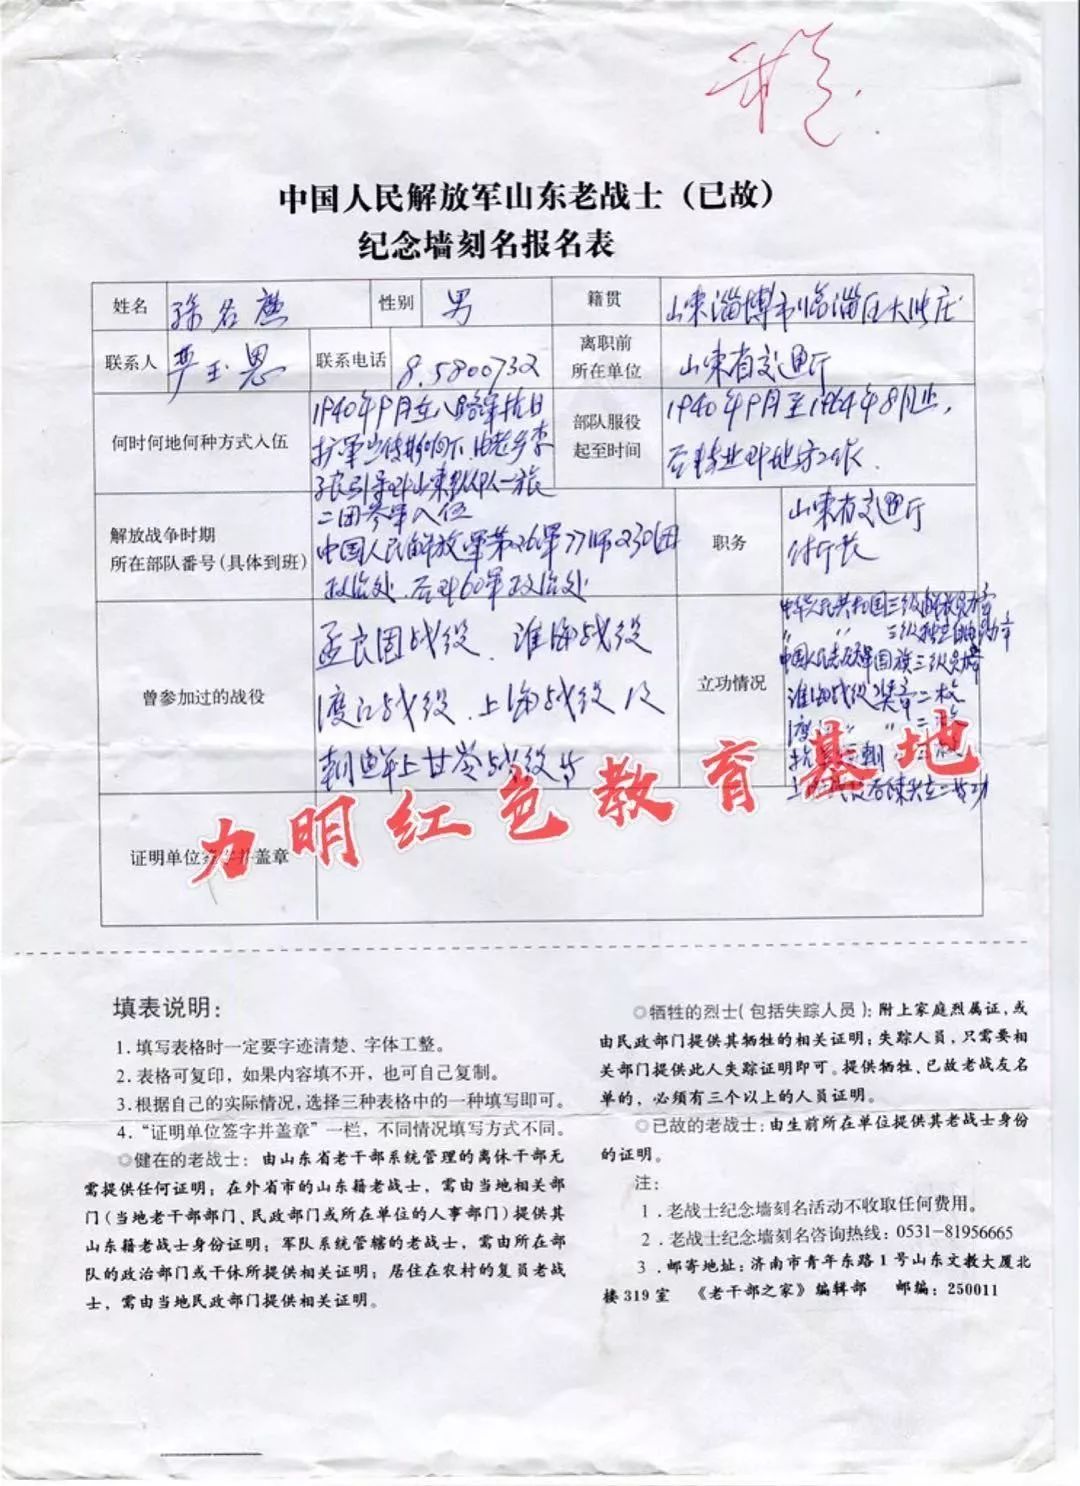 中国人民解放军山东老战士（已故）
纪念墙刻名报名表
姓名 孙名 性别 男 籍贯 山东淄博市临淄区大 庄
联系人 严玉恩 联系电话 8.5800732 离职前所在单位 山东省交通厅
何时何地何种方式入伍
1940年9月在八路军抗日
扩军宣传影响下,由老乡李
引导到山东纵队一旅
二团参军入伍
部队服役
起至时间
1940年9月至1964年8月止,
后转业到地方工作.
解放战争时期
所在部队番号(具体到班)
中国人民解放军第26军77师230团
政治处.后到60军政治处
职务
山东省交通厅
付厅长
曾参加过的战役
孟良固战役、淮海战役
渡江战役、上海战役及
朝鲜上甘岭战役等
立功情况
中华人民共和国三级解放勋章
〃 〃 三级独立自由勋章
三级
淮海战役奖章二枚
渡 〃 二枚
抗 朝
立二等功
证明单位签字并盖章
力明红色教育基地
填表说明：
1. 填写表格时一定要字迹清楚、字体工整。
2. 表格可复印，如果内容填不开，也可自己复制。
3. 根据自己的实际情况，选择三种表格中的一种填写即可。
4. “证明单位签字并盖章”一栏，不同情况填写方式不同。
◎健在的老战士：由山东省老干部系统管理的离休干部无
需提供任何证明；在外省市的山东籍老战士，需由当地相关部
门（当地老干部部门、民政部门或所在单位的人事部门）提供其
山东籍老战士身份证明；军队系统管辖的老战士，需由所在部
队的政治部门或干休所提供相关证明；居住在农村的复员老战
士，需由当地民政部门提供相关证明。
◎牺牲的烈士（包括失踪人员）：附上家庭烈属证，或
由民政部门提供其牺牲的相关证明；失踪人员，只需要相
关部门提供此人失踪证明即可。提供牺牲、已故老战友名
单的，必须有三个以上的人员证明。
◎已故的老战士：由生前所在单位提供其老战士身份
的证明。
注：
1．老战士纪念墙刻名活动不收取任何费用。
2．老战士纪念墙刻名咨询热线：0531-81956665
3．邮寄地址：济南市青年东路1号山东文教大厦北
楼319室 《老干部之家》编辑部 邮编：250011